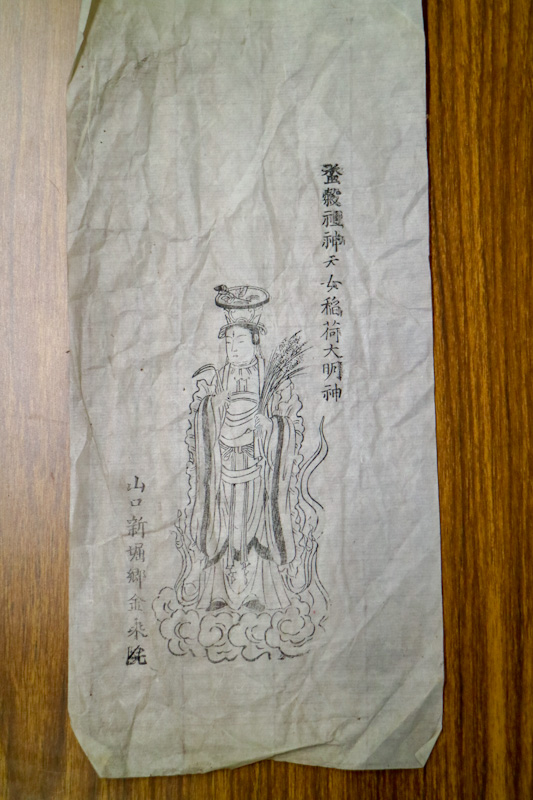 蚕穀祖神天女稲荷大明神
山口新堀郷金乘院